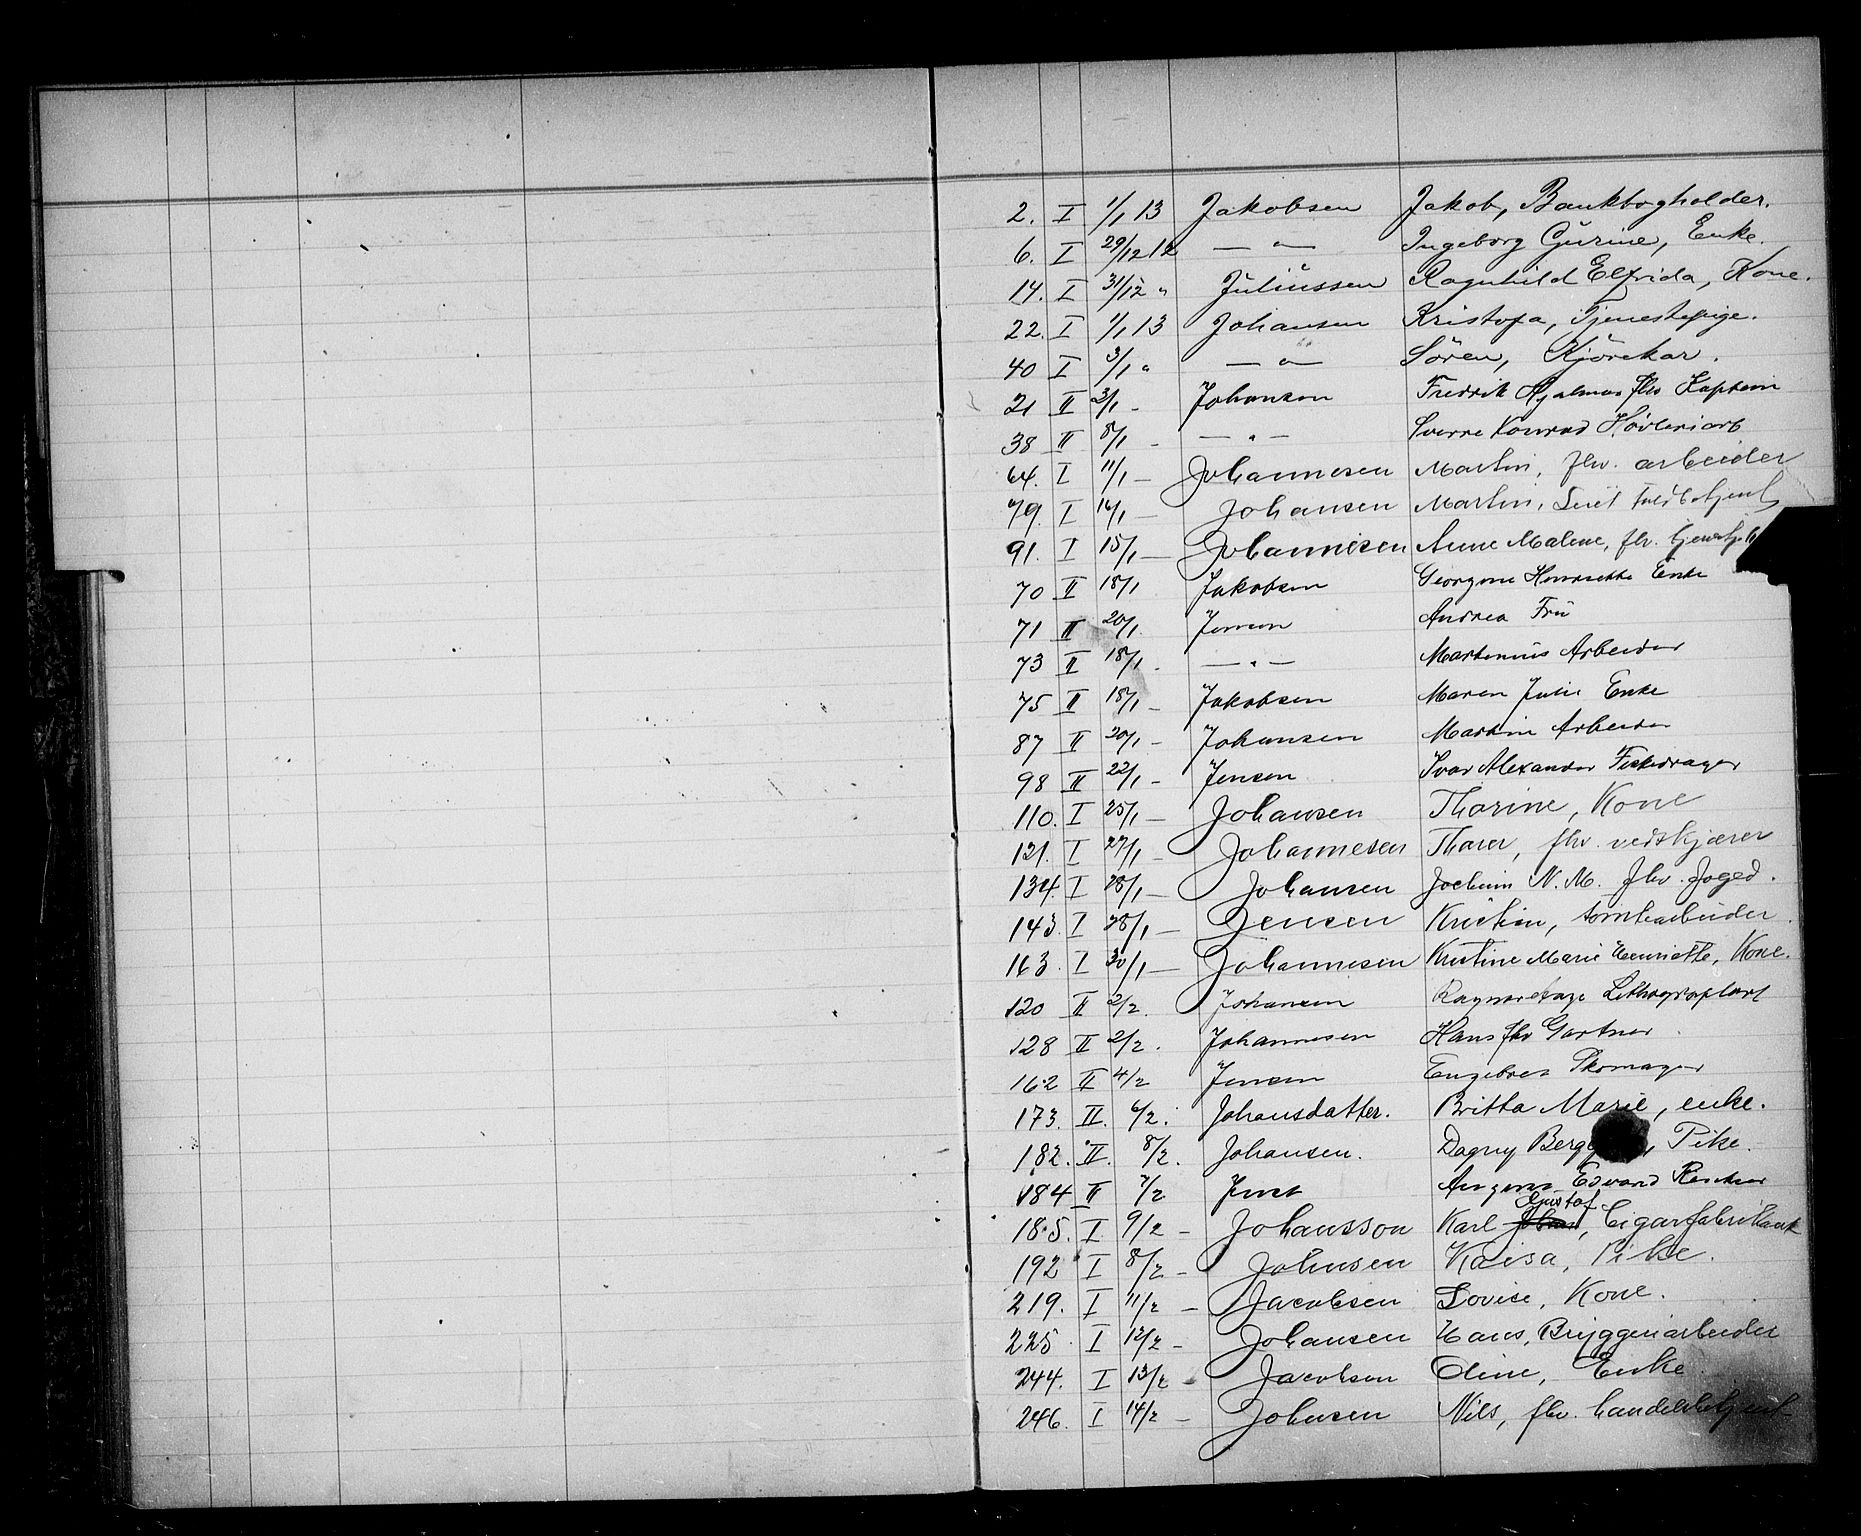 2. I 1/1 13 Jakobsen Jakob, Bankbogholder.
6. I 29/12 12 — " — Ingeborg Gurine, Enke.
14. I 31/12 " Juliussen Ragnhild Elfrida, Kone.
22. I 1/1 13 Johansen Kristofa, Tjenestepige.
40 I 3/1 " — " — Sören, Kjörekar.
21 II 3/1 - Johansen Fredrik Hjalmar fhv Kaptein
38 II 8/1 - — " — Sverre Konrad Høvleriarb
64. I 11/1 — Johannesen Martin, fhv. arbeider
79. I 16/1 — Johansen Martin, Toldbetjent
91. I 15/1 — Johannesen Anne Malene, fhv.
70 II 18/1 Jakobsen Georgine Henriette Enke
71 II 20/1. Jensen Andrea Frü
73 II 18/1 . — " — Martinius Arbeider
75 II 18/1 — Jakobsen Maren Julie Enke
87 II 20/1 — Johansen Martin Arbeider
98 II 22/1 - Jensen Ivar Alexander Fiskedrager
110. I 25/1 — Johansen Thorine, Kone
121. I 27/1 - Johannesen Thorer, fhv. vedskjærer
134. I 28/1 — Johansen Jochim N. M. fhv. foged.
143. I 28/1 — Jensen Kristian, tomtearbeider.
163. I 30/1 — Johannesen Kristine Marie Henriette, Kone.
120 II 2/2. Johansen Ragnar Lithograflærl
128 II 2/2. Johannesen Hans fhv Gartner
162 II 4/2 Jensen Engebret Skomager
173. II. 6/2. Johansdatter. Britta Marie, enke.
182. II. 8/2. Johansen. Dagny Pike.
184 II 7/2 Edvard
185. I 9/2 - Johansson Karl Johan Gustaf, Cigarfabrikant
192 I 8/2 - Johnsen Kaisa, Pike.
219. I 11/2 - Jacobsen Lovise, Kone.
225 I 12/2 - Johansen Hans, Bryggeriarbeider
244. I 13/2 - Jacobsen Oline, Enke
246. I 14/2 — Johnsen Nils, fhv. handelsbetjent